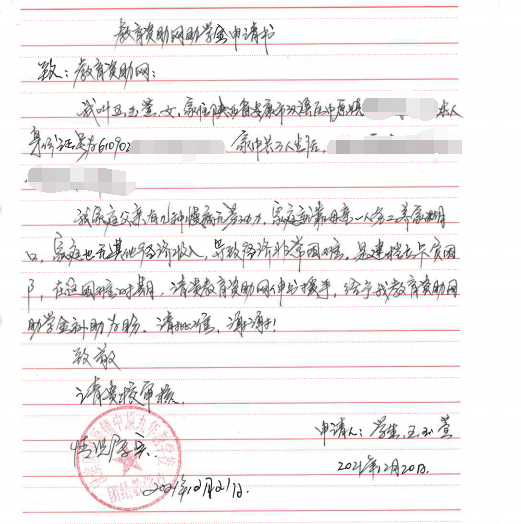 教育资助网助学金申请书
致：教育资助网：
我叫王玉萱，女，家住陕西省安康市汉滨区中原镇 本人
身份证号为610902 家中共三人生活，
我家庭父亲有几种慢病无劳动力，家庭就靠母亲一人务工养家糊
口，家庭也无其他经济收入，导致经济非常困难。是建档立卡贫困
户，在这困难时期，请贵教育资助网伸出援手，给予我教育资助网
助学金补助为盼。请批准，谢谢！
致敬
请贵校审核。
申请人：学生：王玉萱
情况属实
2021年12月20日
2021年12月21日